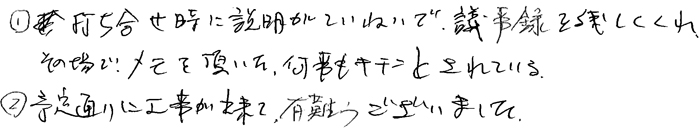 ①打ち合せ時に説明がていねいで、議事録を残してくれ、
その場で、メモを頂いた、何事もキチンとされている。
②予定通りに工事が出来て、有難うございました。